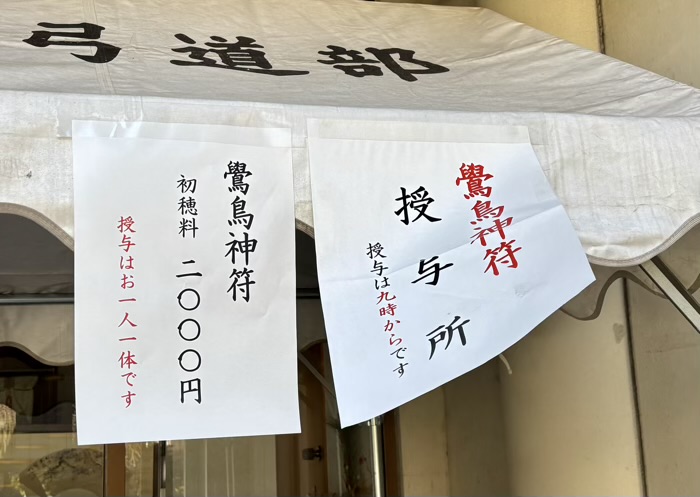 弓道部
鷽鳥神符
初穂料 二〇〇〇円
授与はお一人一体です
鷽鳥神符
授与所
授与は九時からです